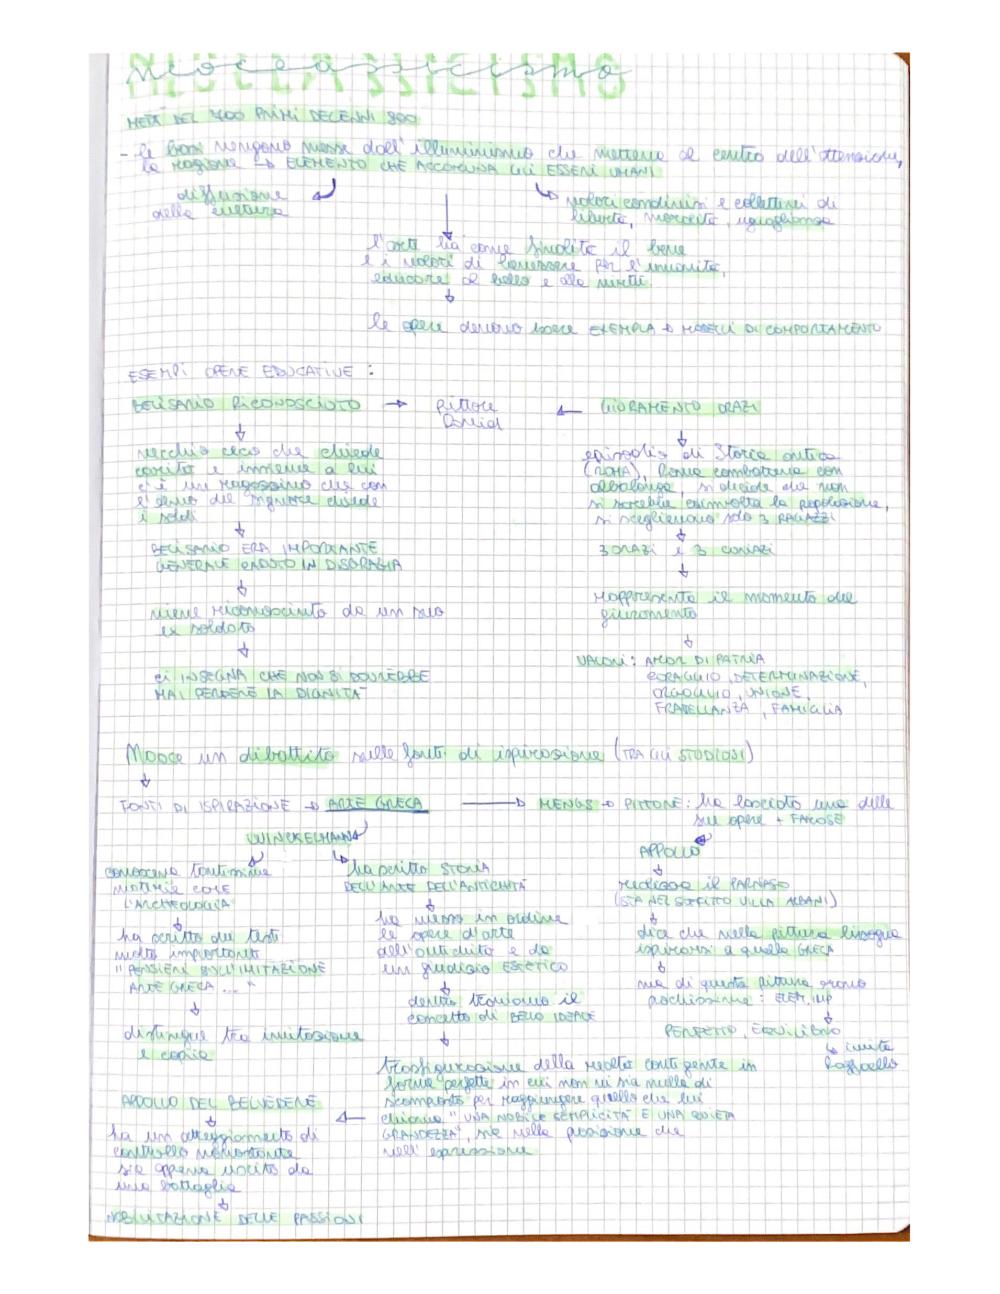 NEOCLASSICISMO
METÀ DEL 700 PRIMI DECENNI 800
- le basi vengono messe dall'illuminismo che mette al centro dell'attenzione,
la ragione → ELEMENTO CHE ACCOMUNA GLI ESSERI UMANI
diffusione
della cultura
valori condivisi e collettivi di
libertà, moralità, uguaglianza
l'arte ha come finalità il bene
e i valori di benessere per l'umanità,
educare al bello e alla virtù.
le opere devono essere EXEMPLA → MODELLI DI COMPORTAMENTO
ESEMPI OPERE EDUCATIVE :
BELISARIO RICONOSCIUTO → pittore
David
← GIURAMENTO ORAZI
vecchio cieco che chiede
carità e insieme a lui
c'è un ragazzino che con
l'elmo del signore chiede
i soldi
BELISARIO ERA IMPORTANTE
GENERALE CADUTO IN DISGRAZIA
viene riconosciuto da un suo
ex soldato
ci INSEGNA CHE NON SI DOVREBBE
MAI PERDERE LA DIGNITÀ
episodio di Storia antica
(ROMA), Roma combatteva con
albalonga, si decide che non
si sarebbe coinvolta la popolazione,
si sceglievano solo 3 RAGAZZI
3 ORAZI e 3 CURIAZI
rappresenta il momento del
giuramento
VALORI : AMOR DI PATRIA
CORAGGIO, DETERMINAZIONE,
ORGOGLIO, UNIONE,
FRATELLANZA, FAMIGLIA
Nasce un dibattito sulle fonti di ispirazione (TRA GLI STUDIOSI)
FONTI DI ISPIRAZIONE → ARTE GRECA → MENGS → PITTORE : ha lasciato una delle
sue opere + FAMOSE
WINCKELMANN
conosceva tantissime
materie come
L'ARCHEOLOGIA
ha scritto dei testi
molto importanti
"PENSIERI SULL'IMITAZIONE
ARTE GRECA ... "
distingue tra imitazione
e copia
ha scritto STORIA
DELL'ARTE DELL'ANTICHITÀ
ha messo in ordine
le opere d'arte
dell'antichità e dà
un giudizio ESTETICO
dentro troviamo il
concetto di BELLO IDEALE
trasfigurazione della realtà contigente in
forme perfette in cui non vi sia nulla di
scomposto per raggiungere quello che lui
chiama "UNA NOBILE SEMPLICITÀ E UNA QUIETA
GRANDEZZA", sia nella posizione che
nell'espressione
APPOLLO
realizza il PARNASO
(STA NEL SOFFITTO VILLA ALBANI)
dice che nella pittura bisogna
ispirarsi a quella GRECA
ma di questa pittura erano
pochissime :
PERFETTO, EQUILIBRO
imita
Raffaello
APPOLLO DEL BELVEDERE
ha un atteggiamento di
controllo nonostante
sia appena uscito da
una battaglia
NOBILITAZIONE DELLE PASSIONI